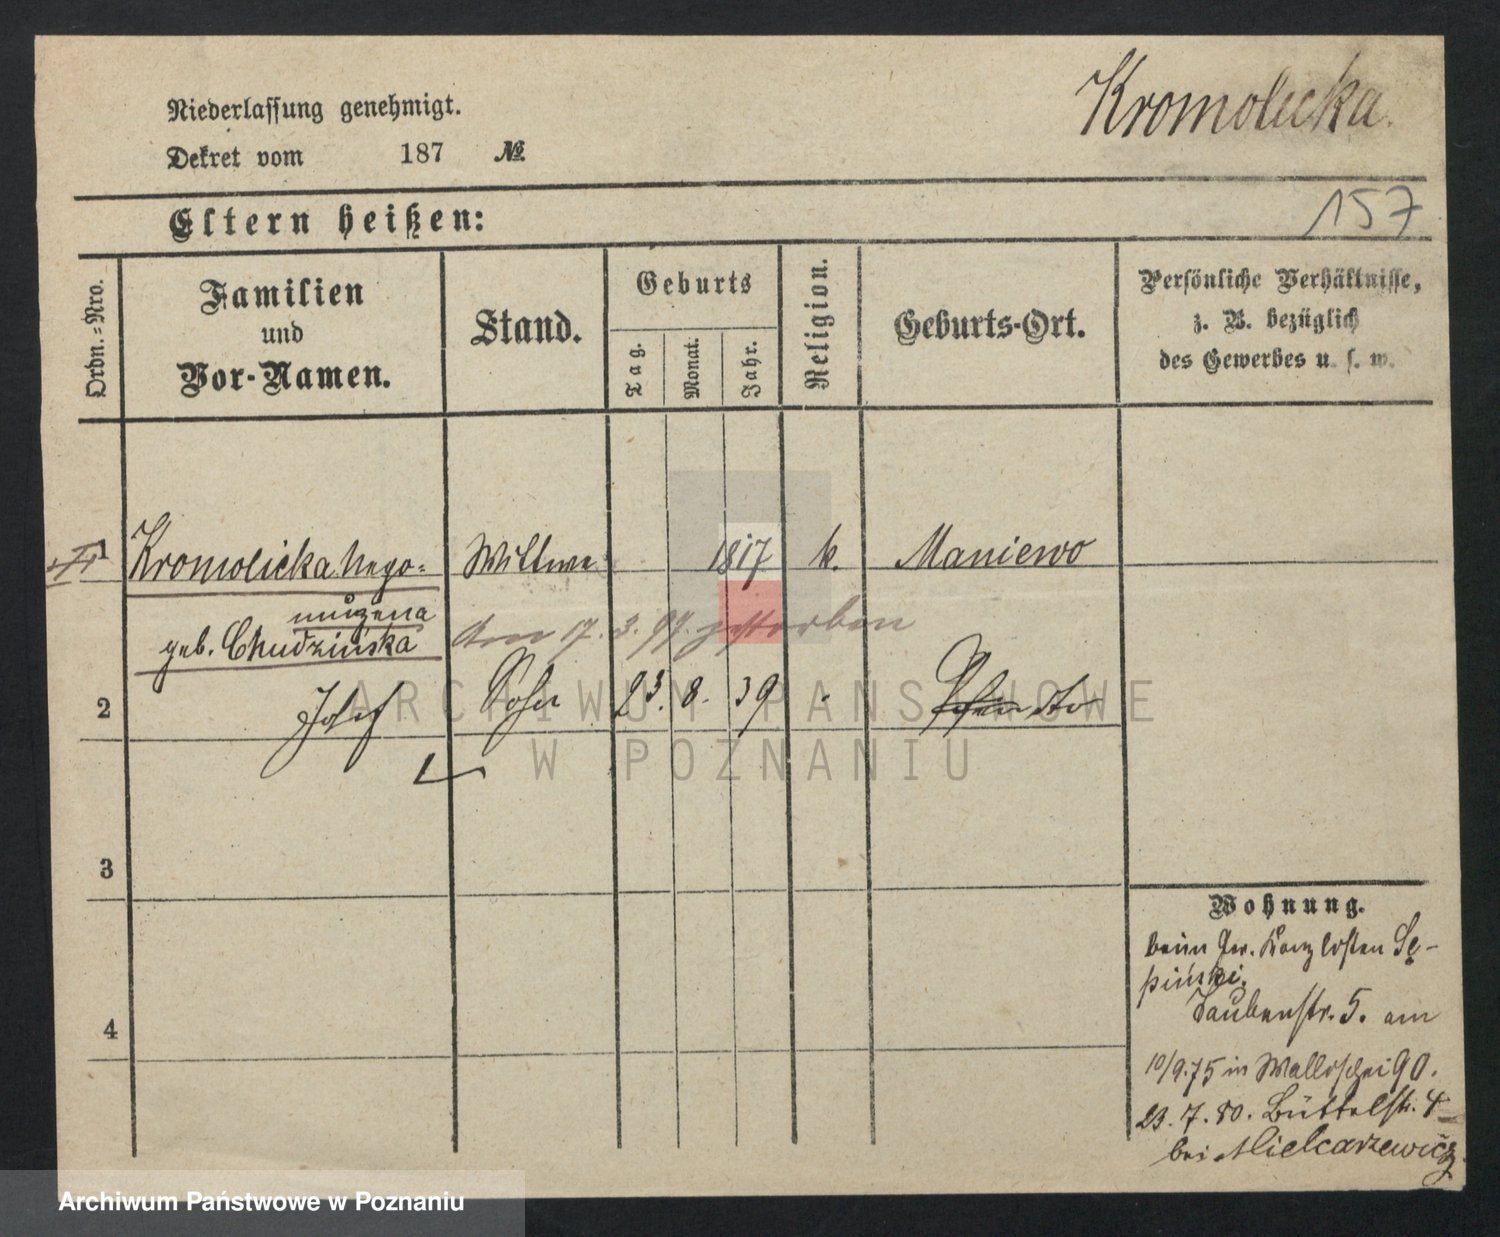 Kromolicka.
Niederlassung genehmigt.
Dekret vom 187 №
157
Eltern heißen:
Ordn.=Nro.
Familien
und
Vor-Namen.
Stand.
Geburts
Tag.
Monat.
Jahr.
Religion.
Geburts-Ort.
Persönliche Verhältnisse,
z. B. bezüglich
des Gewerbes u. s. w.
1 Kromolicka Nepo= Wittwe 1817 k. Maniewo
muzena
geb. Chudzińska
am 17. 3. 99. gestorben
2 Josef Sohn 23. 8. 39
3
4
Wohnung.
beim Kanzlisten Sę-
piński.
Taubenstr. 5. am
10/9.75 in Wallischei 90.
23. 7. 80. Büttelstr. 4
bei Mielcarzewicz
ARCHIWUM PAŃSTWOWE
W POZNANIU
Archiwum Państwowe w Poznaniu